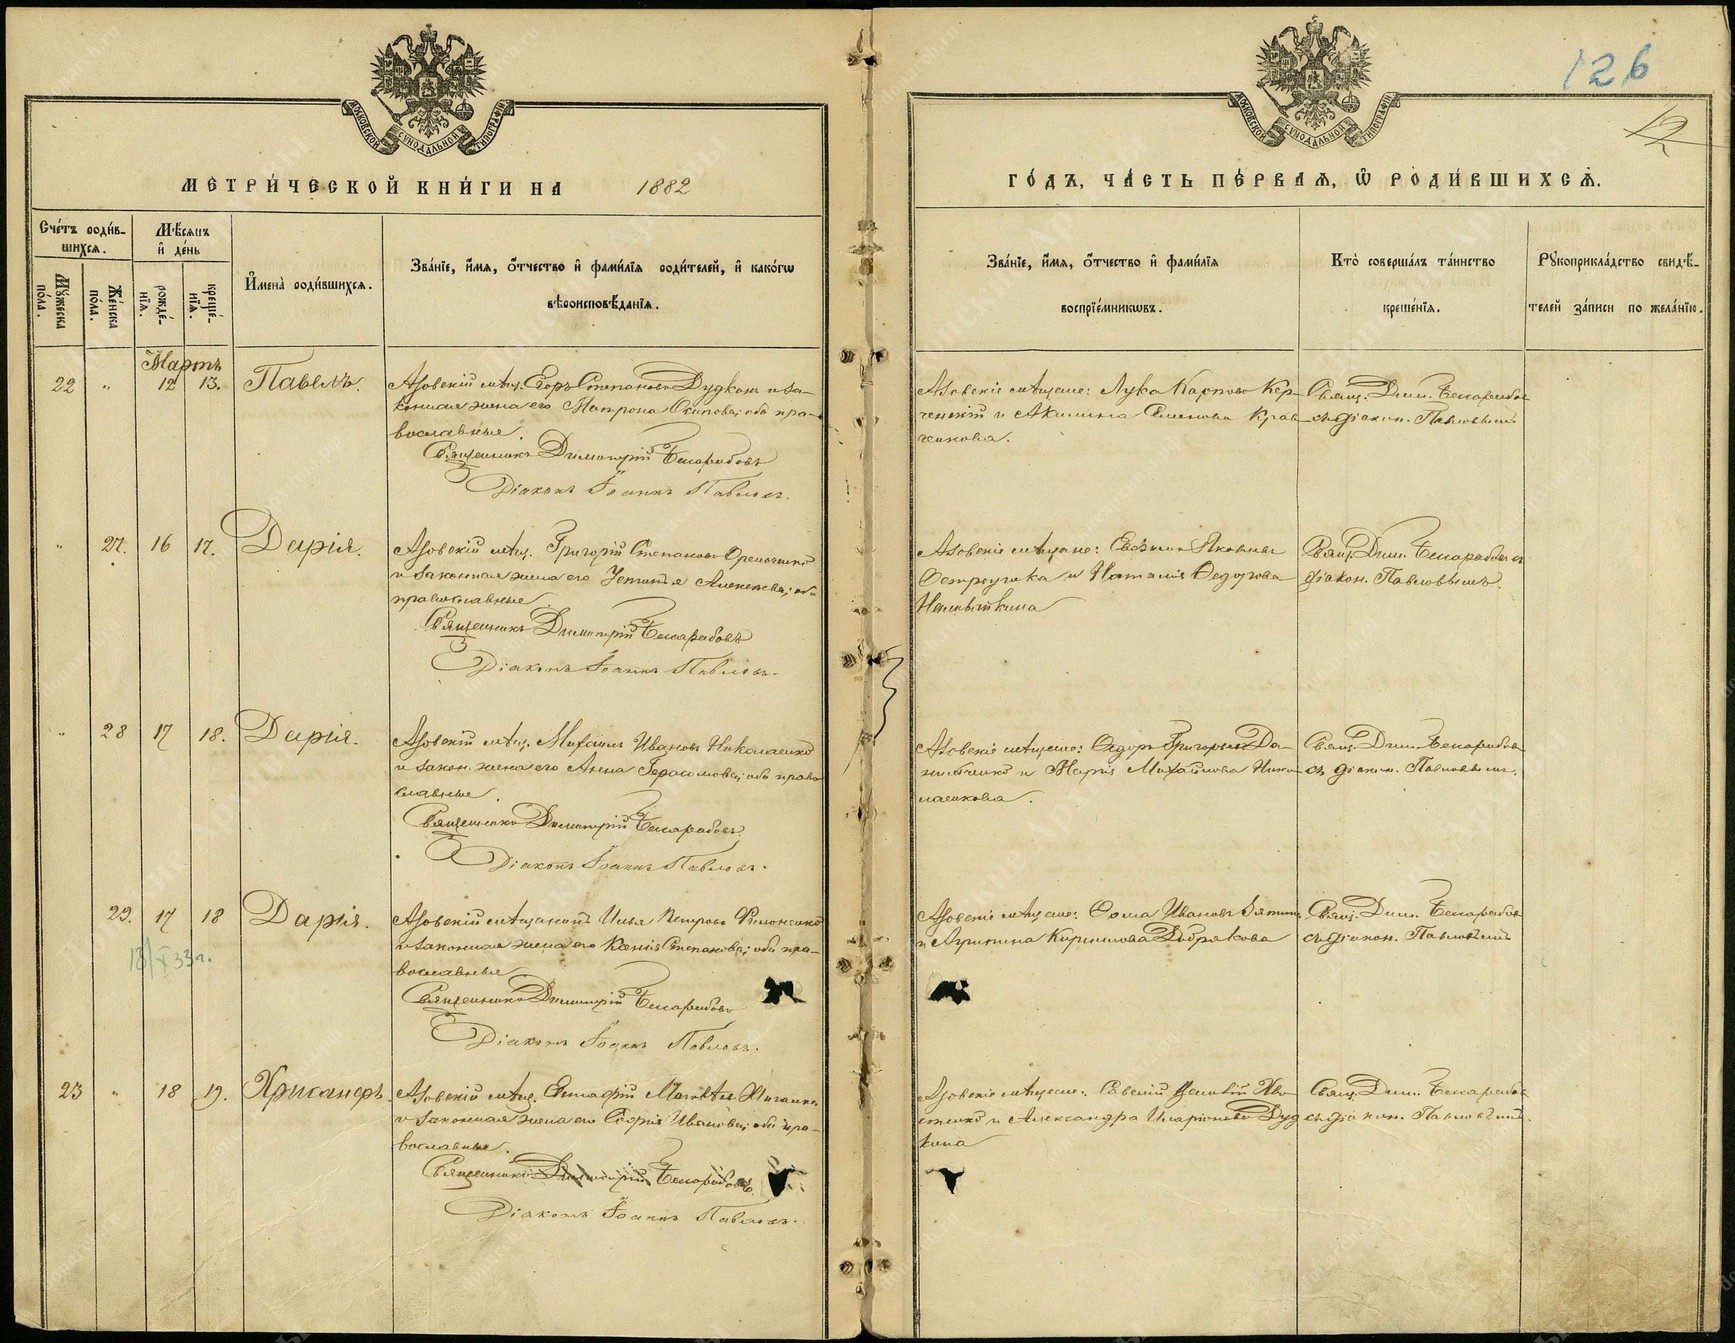 МОСКОВСКОЙ СѴНОДАЛЬНОЙ ТИПОГРАФІИ
МЕТРИ́ЧЕСКОЙ КНИ́ГИ НА 1882
Сче́тъ роди́в-
шихсѧ.
Мѣ́сѧцъ
и҆ де́нь
Мꙋ́жеска
по́ла.
Же́нска
по́ла.
рожде́-
нїѧ.
креще́-
нїѧ.
И҆мена̀ роди́вшихсѧ.
Зва́нїе, и҆́мѧ, ѻ҆́тчество и҆ фами́лїѧ роди́телей, и҆ како́гѡ
вѣроисповѣ́данїѧ.
Мартъ
22 " 12 13. Павелъ.
Азовскій мѣщ. Егоръ Степановъ Дудкинъ и за-
конная жена его Матрона Осипова; оба пра-
вославные.
Священникъ Димитрій
Діаконъ Іоаннъ Павловъ.
" 27. 16 17. Дарія.
Азовскій мѣщ. Григорій Степановъ
и законная жена его Устинія Алексѣева; оба
православные.
Священникъ Димитрій
Діаконъ Іоаннъ Павловъ.
" 28 17 18. Дарія.
Азовскій мѣщ. Михаилъ Ивановъ Николаенко
и закон. жена его Анна Герасимова; оба право
славные.
Священникъ Димитрій
Діаконъ Іоаннъ Павловъ.
29. 17 18 Дарія.
18/X 33 г.
Азовскій мѣщанинъ Илья Петровъ Филоненко
и законная жена его Ксенія Степанова; оба пра-
вославные
Священникъ Димитрій
Діаконъ Іоаннъ Павловъ.
23 " 18 19. Хрисанфъ.
Азовскій мѣщ. Евстафій Матвѣевъ
и законная жена его Софія Иванова; оба пра-
вославные.
Священникъ Димитрій
Діаконъ Іоаннъ Павловъ.
126
12
МОСКОВСКОЙ СѴНОДАЛЬНОЙ ТИПОГРАФІИ
ГО́ДЪ, ЧА́СТЬ ПЕ́РВАѦ, Ѡ҆ РОДИ́ВШИХСѦ.
Зва́нїе, и҆́мѧ, ѻ҆́тчество и҆ фами́лїѧ
воспрїе́мникѡвъ.
Кто̀ соверша́лъ та́инство
креще́нїѧ.
Рꙋкоприкла́дство свидѣ́-
телей за́писи по жела́нїю.
Азовскіе мѣщане: Лука Карповъ Кер-
ченскій и Акилина Семенова Крав-
ченкова.
Свящ. Дим.
съ діакон. Павловымъ
Азовскіе мѣщане:
и Наталія Ѳедорова
Свящ. Дим.
діакон. Павловымъ.
Азовскіе мѣщане: Ѳедоръ Григорьевъ Да-
нильченко и Марія Михайлова Нико-
лаенкова.
Свящ. Дим.
съ діакон. Павловымъ.
Азовскіе мѣщане: Ѳома Ивановъ
и Агрипина Кирилова Добрякова
Свящ. Дим.
съ діакон. Павловымъ
Азовскіе мѣщане: Евсевій
и Александра Иларіонова Дуд
кина
Свящ. Дим.
съ діакон. Павловымъ.